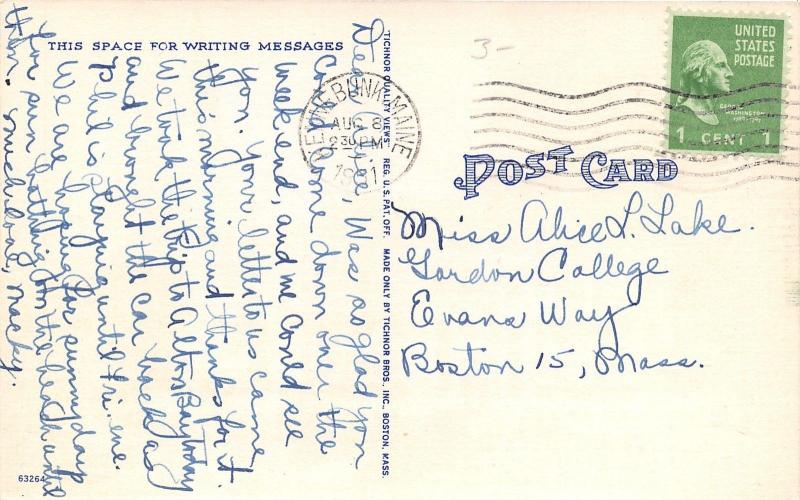 THIS SPACE FOR WRITING MESSAGES
Dear Alice, Was so glad you
could come down over the
week end, and we could see
you. Your letter to us came
this morning and thanks for it.
We took the trip to Alton Bay today
and brought the car back as
Phil is staying until fri. eve.
We are hoping for sunny days
for sun bathing on the beach until
then. much love, Macky.
63264
"TICHNOR QUALITY VIEWS" REG. U. S. PAT. OFF. MADE ONLY BY TICHNOR BROS., INC., BOSTON, MASS.
3-
KENNEBUNK, MAINE
AUG 8
230 PM
UNITED
STATES
POSTAGE
GEORGE
WASHINGTON
1 CENT 1
POST CARD
Miss Alice L. Lake.
Gordon College
Evans Way
Boston 15, Mass.